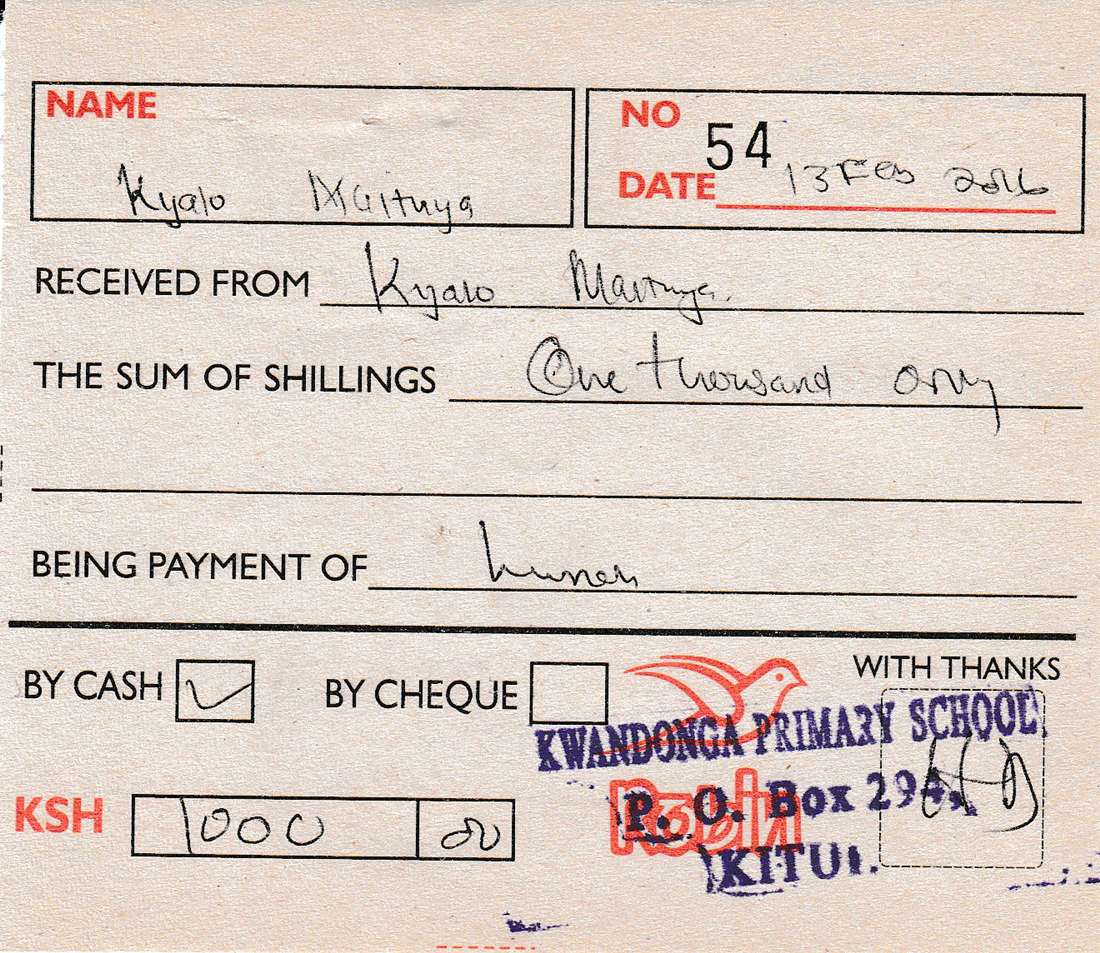 NAME
Kyalo Maituya
NO 54
DATE 13 Feb 2016
RECEIVED FROM Kyalo Maituya.
THE SUM OF SHILLINGS One thousand only
BEING PAYMENT OF lunch
BY CASH BY CHEQUE WITH THANKS
KWANDONGA PRIMARY SCHOOL
P. O. Box 294,
KITUI.
KSH 1000 00